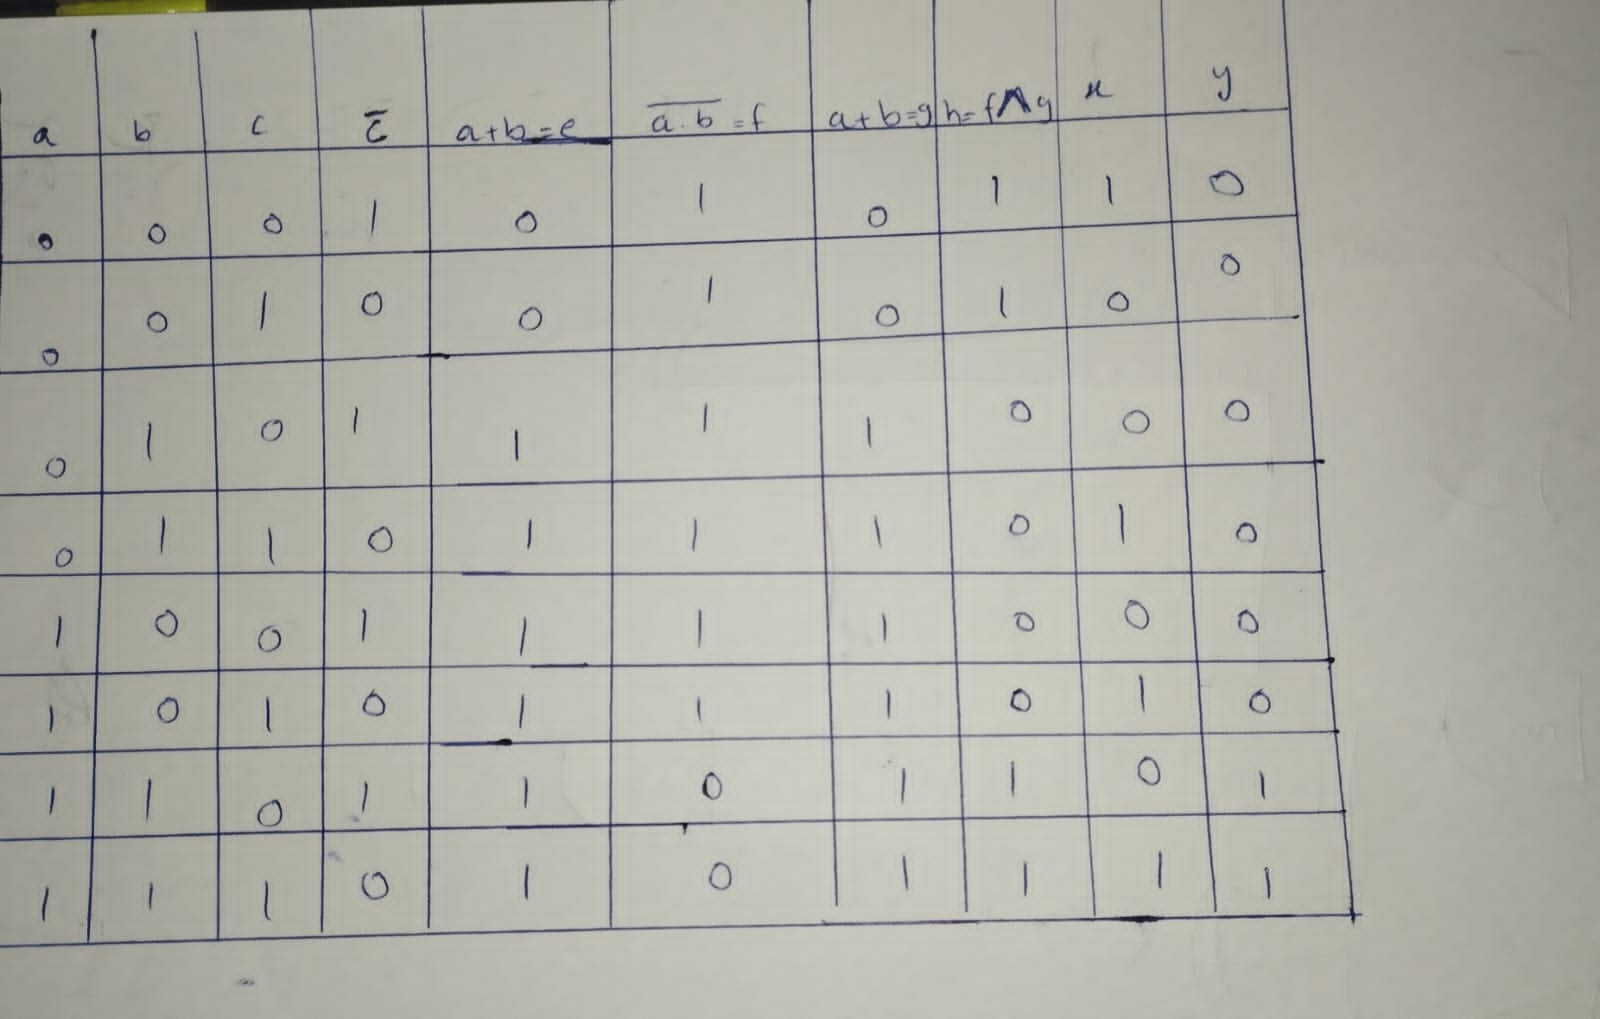 a b c c̅ a+b=e a̅.̅b̅=f a+b=g h=f∧g x y
0 0 0 1 0 1 0 1 1 0
0 0 1 0 0 1 0 1 0 0
0 1 0 1 1 1 1 0 0 0
0 1 1 0 1 1 1 0 1 0
1 0 0 1 1 1 1 0 0 0
1 0 1 0 1 1 1 0 1 0
1 1 0 1 1 0 1 1 0 1
1 1 1 0 1 0 1 1 1 1